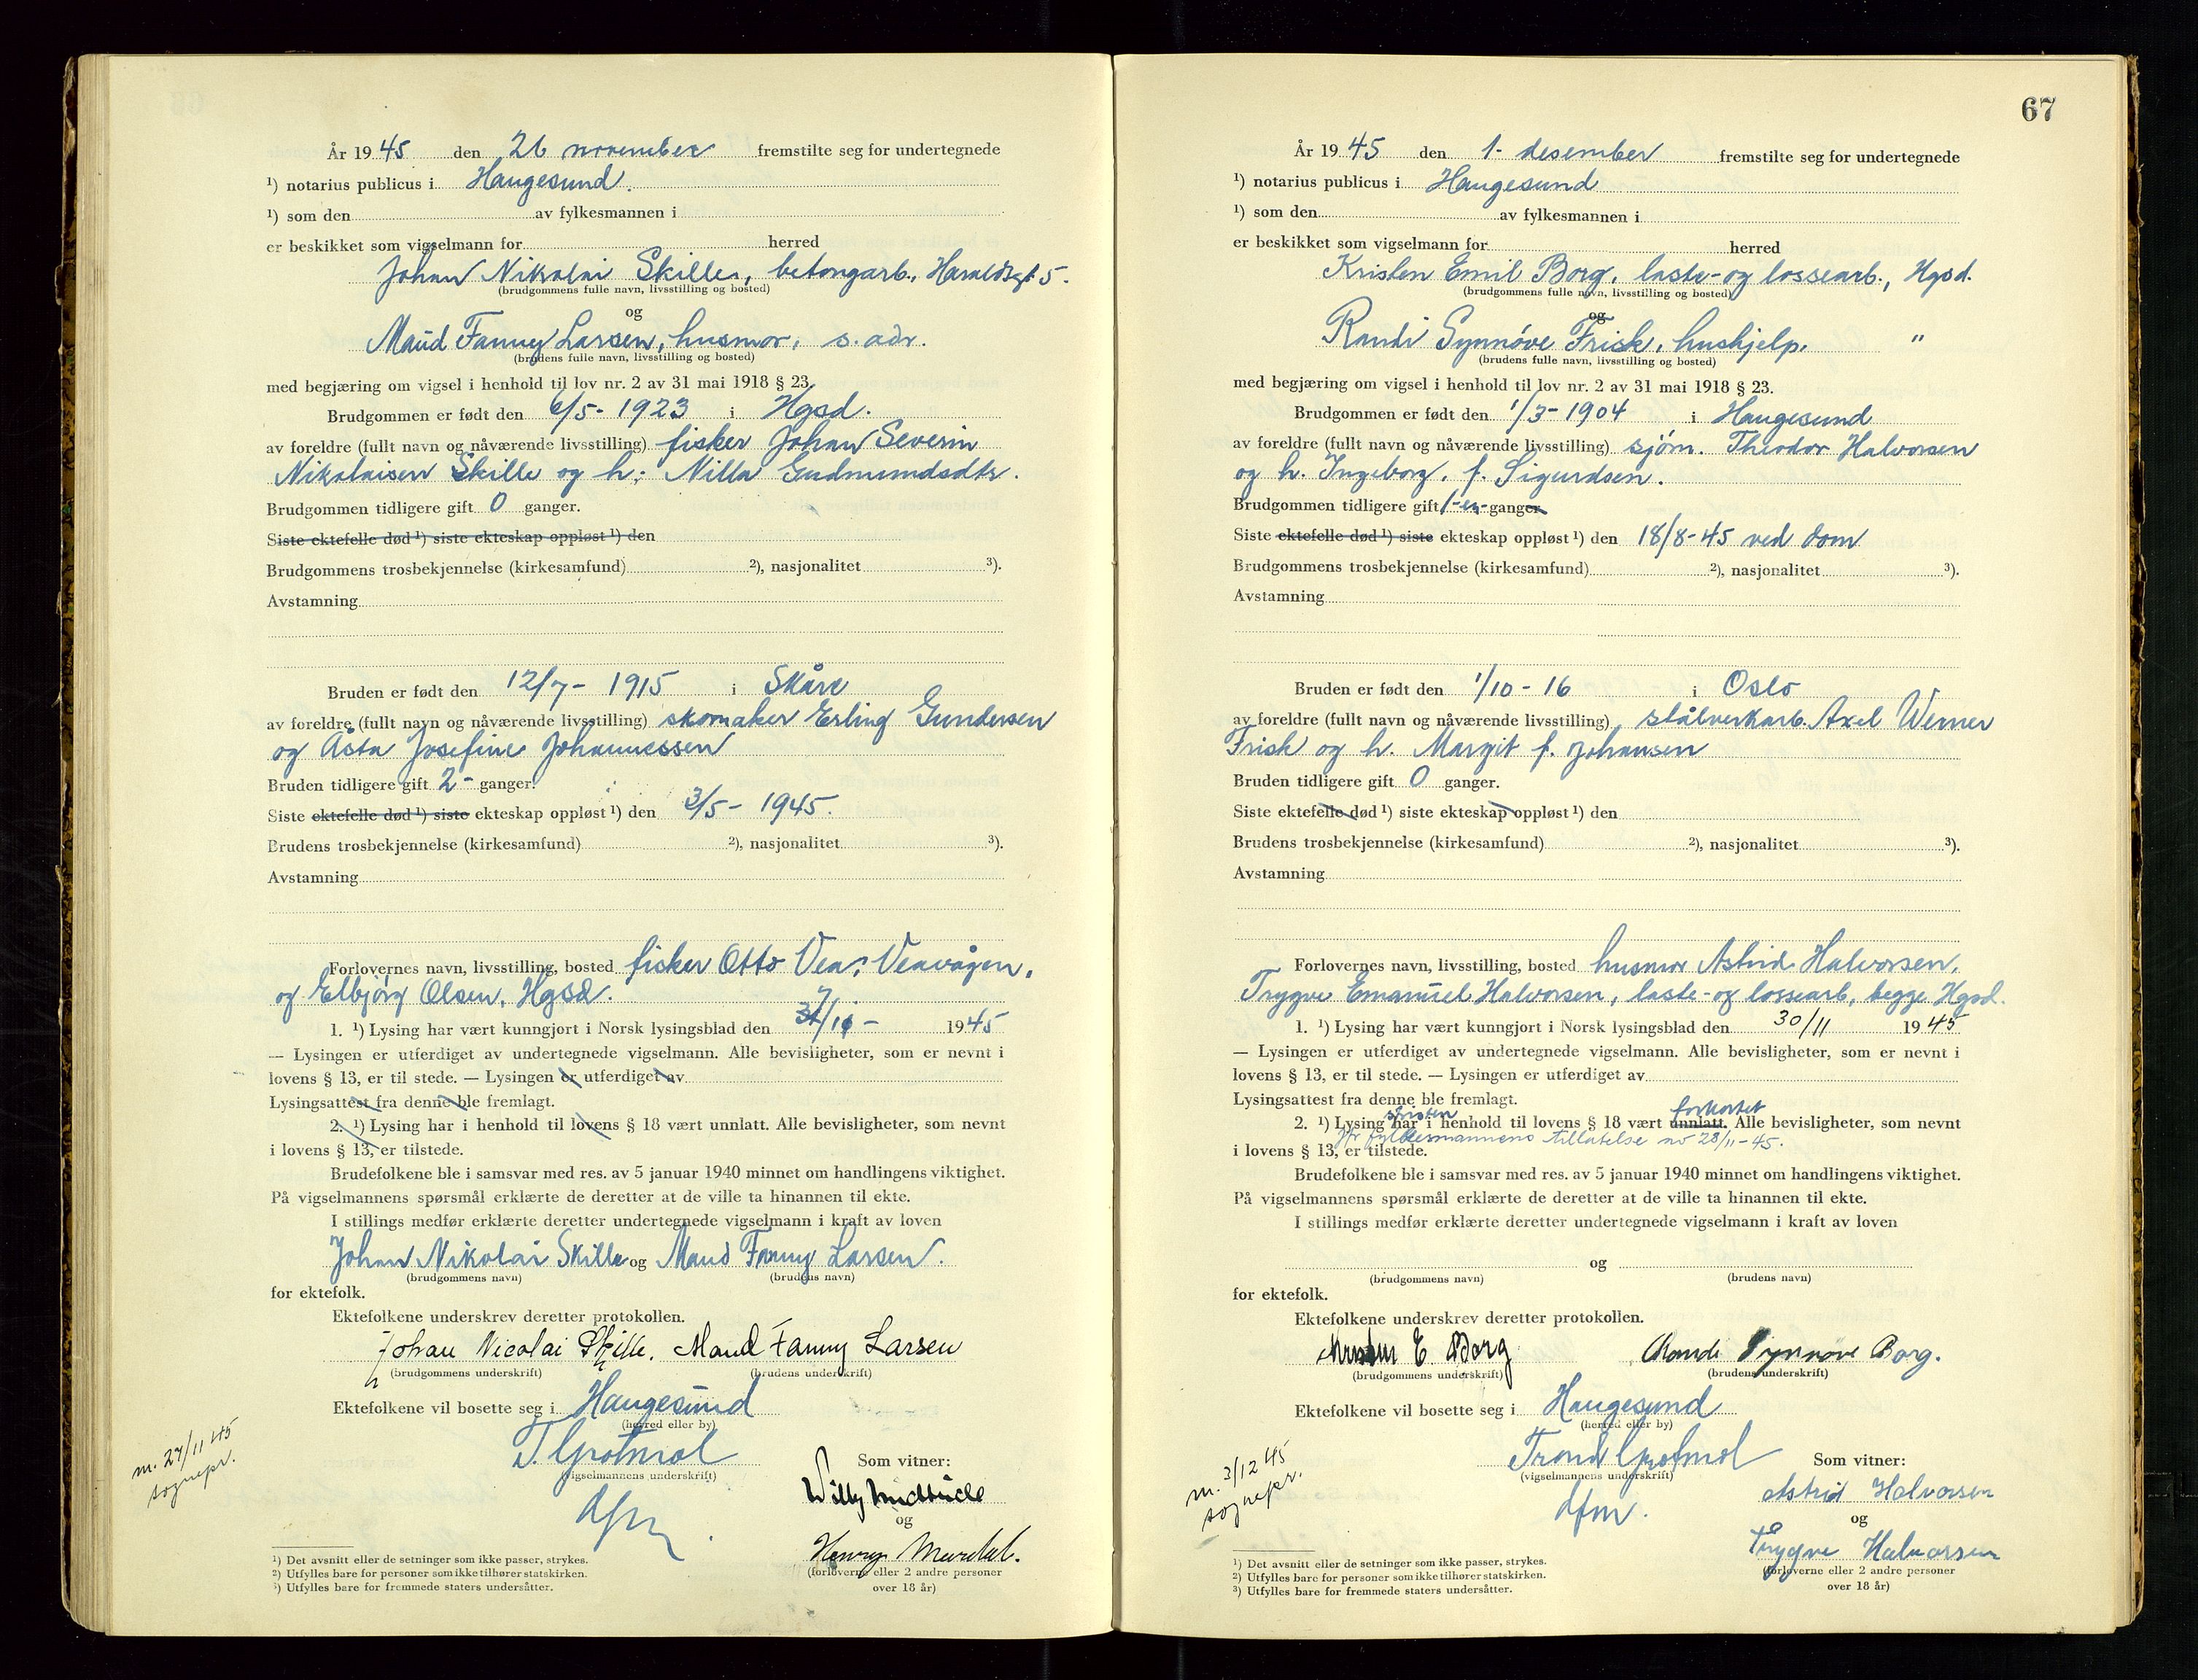 År 1945 den 26 november fremstilte seg for undertegnede
¹) notarius publicus i Haugesund.
¹) som den av fylkesmannen i
er beskikket som vigselmann for herred
Johan Nikolai Skille, betongarb., Haraldsgt 5.
(brudgommens fulle navn, livsstilling og bosted)
og
Maud Fanny Larsen, husmor, s. adr.
(brudens fulle navn, livsstilling og bosted)
med begjæring om vigsel i henhold til lov nr. 2 av 31 mai 1918 § 23.
Brudgommen er født den 6/5- 1923 i Hgsd.
av foreldre (fullt navn og nåværende livsstilling) fisker Johan Severin
Nikolaisen Skille og h: Nilla Gudmundsdtr.
Brudgommen tidligere gift 0 ganger.
Siste ektefelle død ¹) siste ekteskap oppløst ¹) den
Brudgommens trosbekjennelse (kirkesamfund) ²), nasjonalitet ³).
Avstamning
Bruden er født den 12/7- 1915 i Skåre
av foreldre (fullt navn og nåværende livsstilling) skomaker Erling Gundersen
og Åsta Josefine Johannessen
Bruden tidligere gift 2- ganger.
Siste ektefelle død ¹) siste ekteskap oppløst ¹) den 3/5- 1945.
Brudens trosbekjennelse (kirkesamfund) ²), nasjonalitet ³).
Avstamning
Forlovernes navn, livsstilling, bosted fisker Otto Vea, Veavågen,
og Elbjørg Olsen, Hgsd.
1. ¹) Lysing har vært kunngjort i Norsk lysingsblad den 7/11- 1945
— Lysingen er utferdiget av undertegnede vigselmann. Alle bevisligheter, som er nevnt i
lovens § 13, er til stede. — Lysingen er utferdiget av
Lysingsattest fra denne ble fremlagt.
2. ¹) Lysing har i henhold til lovens § 18 vært unnlatt. Alle bevisligheter, som nevnt
i lovens § 13, er tilstede.
Brudefolkene ble i samsvar med res. av 5 januar 1940 minnet om handlingens viktighet.
På vigselmannens spørsmål erklærte de deretter at de ville ta hinannen til ekte.
I stillings medfør erklærte deretter undertegnede vigselmann i kraft av loven
Johan Nikolai Skille og Maud Fanny Larsen.
(brudgommens navn) (brudens navn)
for ektefolk.
Ektefolkene underskrev deretter protokollen.
Johan Nicolai Skille. Maud Fanny Larsen
(brudgommens underskrift) (brudens underskrift)
Ektefolkene vil bosette seg i Haugesund
(herred eller by)
T. Grotmol
(vigselmannens underskrift)
dfm.
m. 27/11 45
sognepr.
Som vitner:
Willy
og
Henry
(forloverne eller 2 andre personer
over 18 år)
¹) Det avsnitt eller de setninger som ikke passer, strykes.
²) Utfylles bare for personer som ikke tilhører statskirken.
³) Utfylles bare for fremmede staters undersåtter.
67
År 1945 den 1- desember fremstilte seg for undertegnede
¹) notarius publicus i Haugesund
¹) som den av fylkesmannen i
er beskikket som vigselmann for herred
Kristen Emil Borg, laste- og lossearb., Hgsd.
(brudgommens fulle navn, livsstilling og bosted)
og
Randi Synnøve Frisk, hushjelp, "
(brudens fulle navn, livsstilling og bosted)
med begjæring om vigsel i henhold til lov nr. 2 av 31 mai 1918 § 23.
Brudgommen er født den 1/3- 1904 i Haugesund
av foreldre (fullt navn og nåværende livsstilling) sjøm. Theodor Halvorsen
og h. Ingeborg, f. Sigurdsen.
Brudgommen tidligere gift 1-en- ganger
Siste ektefelle død ¹) siste ekteskap oppløst ¹) den 18/8-45 ved dom
Brudgommens trosbekjennelse (kirkesamfund) ²), nasjonalitet ³).
Avstamning
Bruden er født den 1/10 - 16 i Oslo
av foreldre (fullt navn og nåværende livsstilling) stålverkarb. Axel Werner
Frisk og h. Margit f. Johansen
Bruden tidligere gift 0 ganger.
Siste ektefelle død ¹) siste ekteskap oppløst ¹) den
Brudens trosbekjennelse (kirkesamfund) ²), nasjonalitet ³).
Avstamning
Forlovernes navn, livsstilling, bosted husmor Astrid Halvorsen,
Trygve Emanuel Halvorsen, laste- og lossearb, begge Hgsd.
1. ¹) Lysing har vært kunngjort i Norsk lysingsblad den 30/11 1945
— Lysingen er utferdiget av undertegnede vigselmann. Alle bevisligheter, som er nevnt i
lovens § 13, er til stede. — Lysingen er utferdiget av
Lysingsattest fra denne ble fremlagt.
fristen forkortet
2. ¹) Lysing har i henhold til lovens § 18 vært unnlatt. Alle bevisligheter, som nevnt
jfr fylkesmannens tillatelse av 28/11-45.
i lovens § 13, er tilstede.
Brudefolkene ble i samsvar med res. av 5 januar 1940 minnet om handlingens viktighet.
På vigselmannens spørsmål erklærte de deretter at de ville ta hinannen til ekte.
I stillings medfør erklærte deretter undertegnede vigselmann i kraft av loven
og
(brudgommens navn) (brudens navn)
for ektefolk.
Ektefolkene underskrev deretter protokollen.
Kristen E. Borg Randi Synnøve Borg.
(brudgommens underskrift) (brudens underskrift)
Ektefolkene vil bosette seg i Haugesund
(herred eller by)
Trond Grotmol
(vigselmannens underskrift)
dfm.
m. 3/12 45
sognepr.
Som vitner:
Astrid Halvorsen
og
Trygve Halvorsen
(forloverne eller 2 andre personer
over 18 år)
¹) Det avsnitt eller de setninger som ikke passer, strykes.
²) Utfylles bare for personer som ikke tilhører statskirken.
³) Utfylles bare for fremmede staters undersåtter.